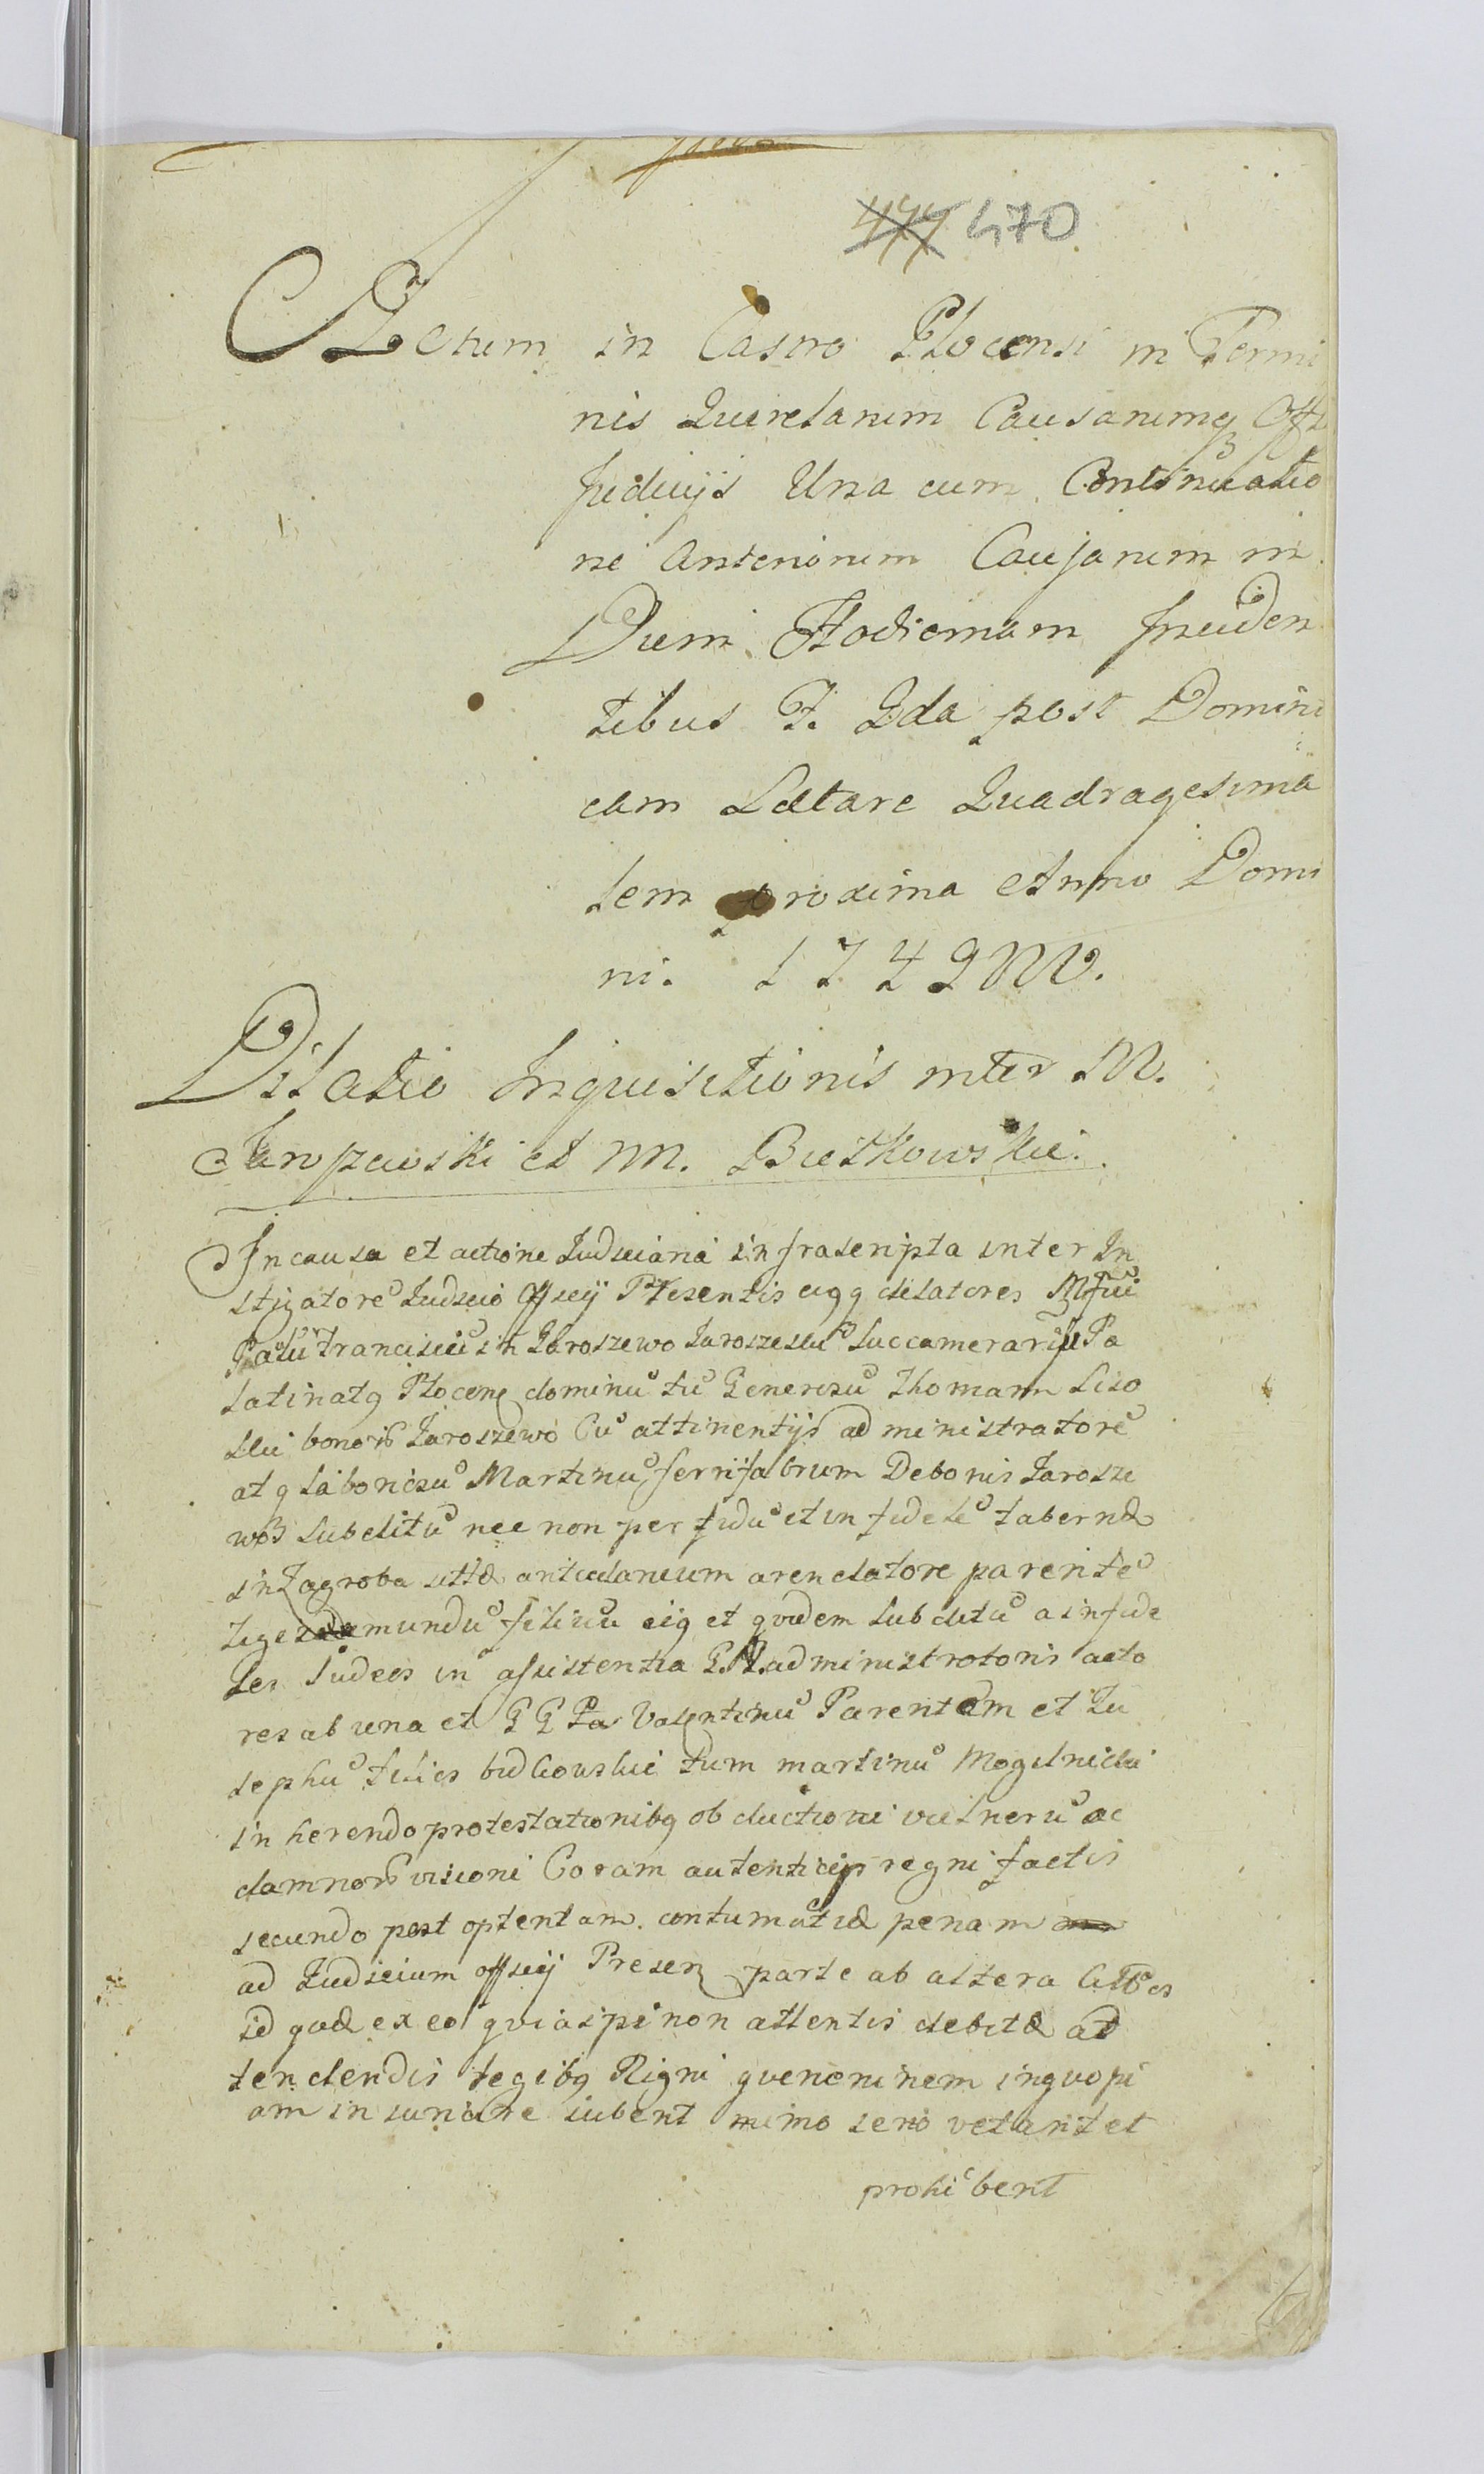 470
Actum in Castro Plocensi in Termi
nis Querelarum Causarumq Offi
Judicijs Una cum Continuatio
ne Anteriorum Causarum in
Diem Hodiernam Inciden
tibus F. 2da post Domini
cam Lætare Quadragesima
lem proxima Anno Domi
ni. 1749
Dilatio Inquisitionis inter M.
et M. Butkowskie.
In causa et actione Judiciaria infrascripta inter In
stigatore Judicio Officij Presentis eiqq delatores
Franciscu in Jaroszewo Jaroszeski Succamerariu Pa
latinatq Plocen dominu tu Generosu Thomam Liso
ski bonor Jaroszewo Cu attinentijs administratore
atq laboriosu Martinu ferrifabrum De bonis Jarosze
wo Subditu nec non perfidu et infidele tabernæ
in Zagroba sittæ antiudaneum arendatore parente
mundu filiu eiq et quidem subditu a infide
les Judeos in assistentia administratoris acto
res ab una et G G Valentinu Parentem et Jo
sephu filios budkowskie tum martinu Mogilnicki
inherendo protestationibq obductioni vulneru ac
damnor visioni Coram autenticis regni factis
secundo post optentam contumatiæ penam
ad Judicium officij Presen parte ab altera Citatos
id quæ ex eo quia ipsi non attentis debitæ at
tendendis legibq Rigni que neminem inquopi
am iniuriare iubent mimo serio vetant et
prohibent